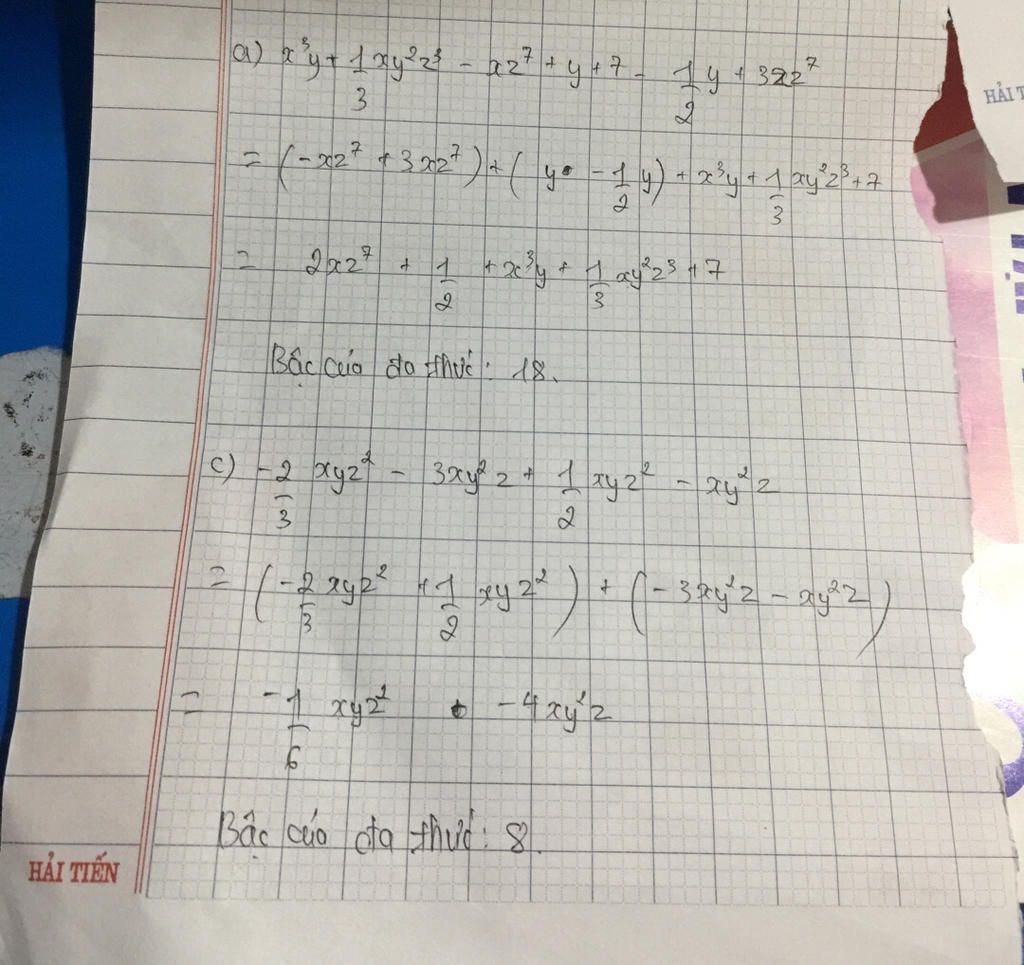 a) x³y + 1/3 xy²z³ - xz⁷ + y + 7 - 1/2 y + 3xz⁷
= (-xz⁷ + 3xz⁷) + (y - 1/2 y) + x³y + 1/3 xy²z³ + 7
= 2xz⁷ + 1/2 + x³y + 1/3 xy²z³ + 7
Bậc của đa thức: 18.
c) -2/3 xyz² - 3xy²z + 1/2 xyz² - xy²z
= (-2/3 xyz² + 1/2 xyz²) + (-3xy²z - xy²z)
= -1/6 xyz² - 4xy²z
Bậc của đa thức: 8.
HẢI TIẾN
HẢI T